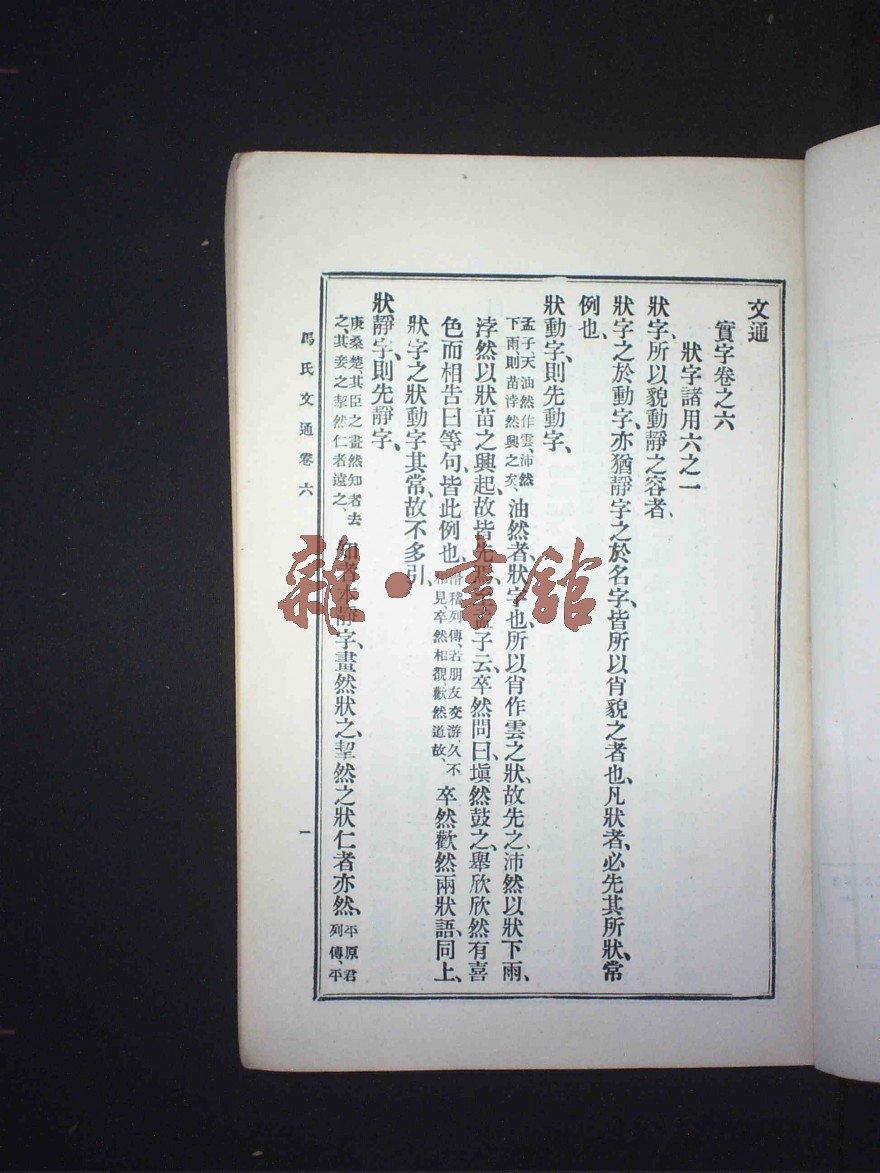 文通
實字卷之六
狀字諸用六之一
狀字、所以貌動靜之容者、
狀字之於動字、亦猶靜字之於名字、皆所以肖貌之者也、凡狀者、必先其所狀、常
例也、
狀動字、則先動字、
孟子、天油然作雲、沛然下雨、則苗浡然興之矣、油然者、狀字也、所以肖作雲之狀、故先之、沛然以狀下雨、
浡然以狀苗之興起、故皆先焉、孟子云、卒然問曰、塡然鼓之、舉欣欣然有喜
色而相告曰等句、皆此例也、滑稽列傳、若朋友交游、久不相見、卒然相覩、歡然道故、卒然歡然兩狀語、同上、
狀字之狀動字其常、故不多引、
狀靜字、則先靜字、
庚桑楚、其臣之畫然知者去之、其妾之挈然仁者遠之、知者本靜字、畫然狀之、挈然之狀仁者亦然、平原君列傳、平
馬氏文通卷六
一
雜·書館